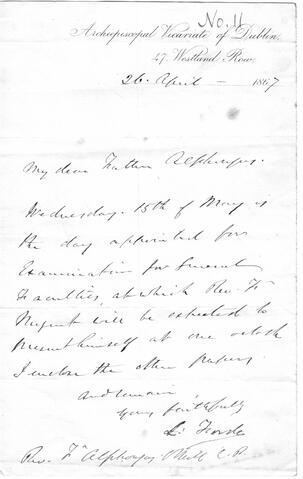 No. 11
Archiepiscopal Vicariate of Dublin,
47, Westland Row.
26. April - 1867
My dear Father Alphonsus.
Wednesday. 15th of May is
the day appointed for
Examination for General
Faculties, at which Rev. Fr
Nugent will be expected to
present himself at one oclock
I enclose the other papers
and remain
yours faithfully
L. Forde
Rev. Fr Alphonsus O'Neill C.P.